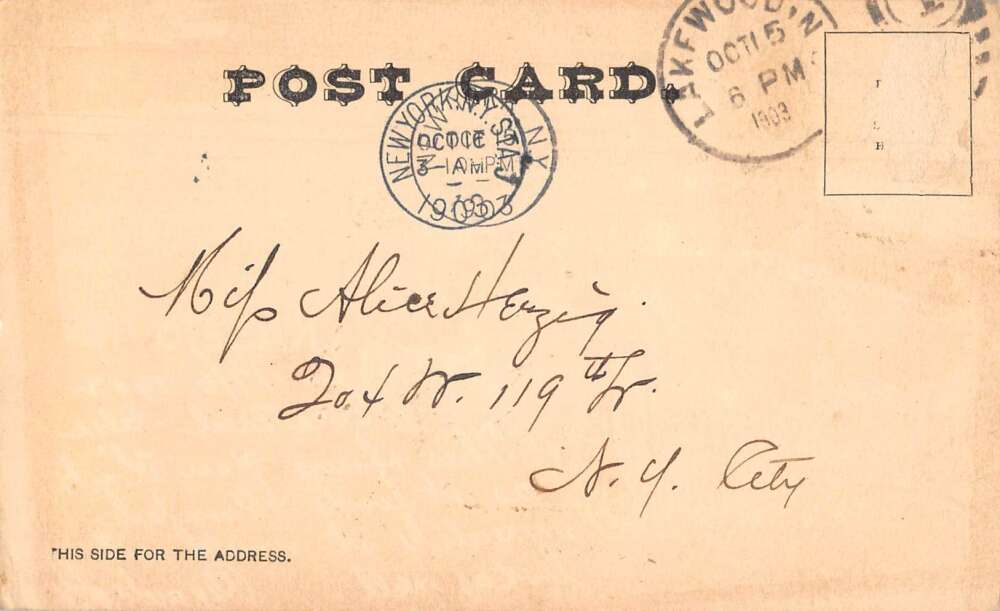 POST CARD.
LAKEWOOD, N
OCT 15
6 PM
1903
NEW YORK, N.Y. STA J
1903
Miss Alice Herzig
204 W. 119th St.
N. Y. City
THIS SIDE FOR THE ADDRESS.